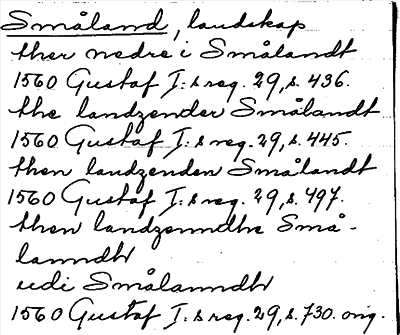 Småland, landskap
ther nedre i Smålandt
1560 Gustaf I:s reg. 29, s. 436.
the landzender Smålandt
1560 Gustaf I:s reg. 29, s. 445.
then landzenden Smålandt
1560 Gustaf I:s reg. 29, s. 497.
then landzenndhe Små-
lanndh
udi Smålanndh
1560 Gustaf I:s reg. 29, s. 730. orig.